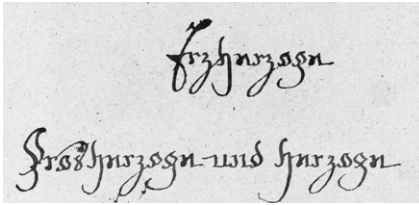 Erzherzoge
Großherzoge und herzoge